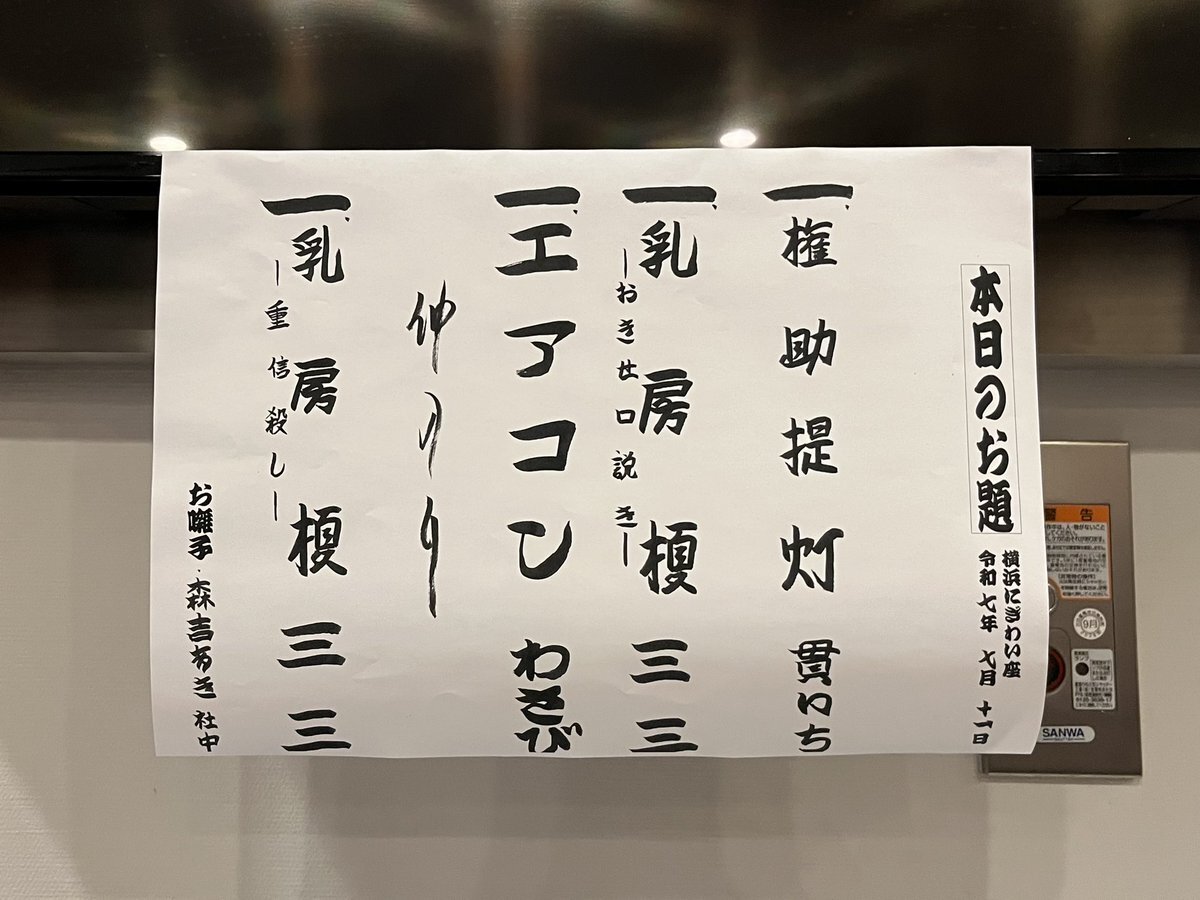 本日のお題
横浜にぎわい座
令和七年 七月 十一日
一、権助提灯 貫いち
一、乳房榎 三三
―おきせ口説き―
一、エアコン わさび
仲入り
一、乳房榎 三三
―重信殺し―
お囃子・森吉あき 社中
警告
9月
SANWA